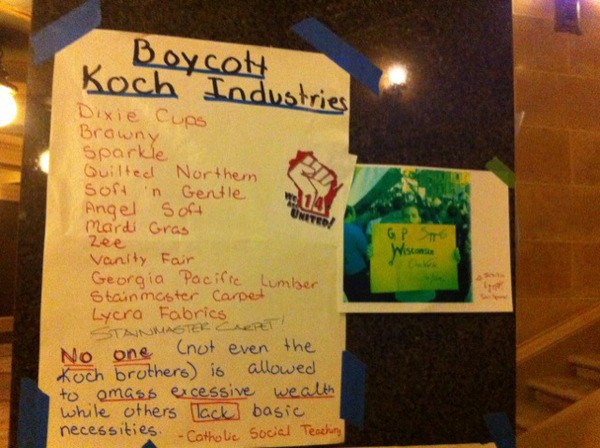 Boycott
Koch Industries
Dixie Cups
Brawny
Sparkle
Quilted Northern
Soft 'n Gentle
Angel Soft
Mardi Gras
Zee
Vanity Fair
Georgia Pacific Lumber
Stainmaster Carpet
Lycra Fabrics
STAINMASTER CARPET!
No one (not even the
Koch brothers) is allowed
to amass excessive wealth
while others lack basic
necessities. - Catholic Social Teaching
14
WE ARE
UNITED!
G P
Wisconsin